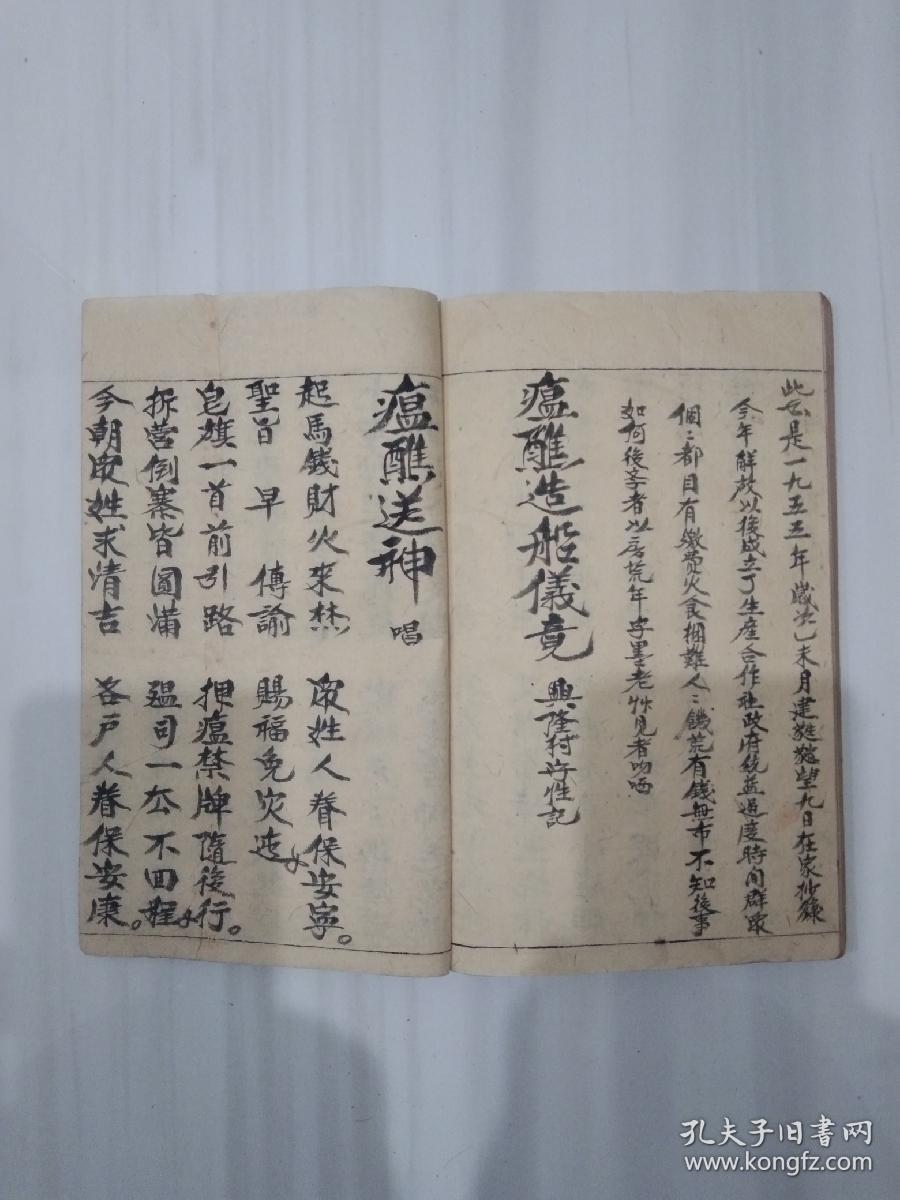 此書是一九五五年歲次乙未月建望九日在家抄錄
今年解放以後成立了生產合作社政府統蓝過度時间群眾
個〻都目有繳费火食捆難人〻饑荒有錢無布不知後事
如何後筝者以居荒年字墨老炑見者吻哂
瘟醮造船儀竟 興隆村許性記
瘟醮送神 唱
起馬錢財火來焚 眾姓人眷保安寧。
聖旨早傳諭 賜福免災迍
皂旗一首前引路 押瘟禁牌隨後行。
拆营倒寨皆圓滿 瘟司一公不回程
今朝眾姓求清吉 各戶人眷保安康。
孔夫子旧书网
www.kongfz.com